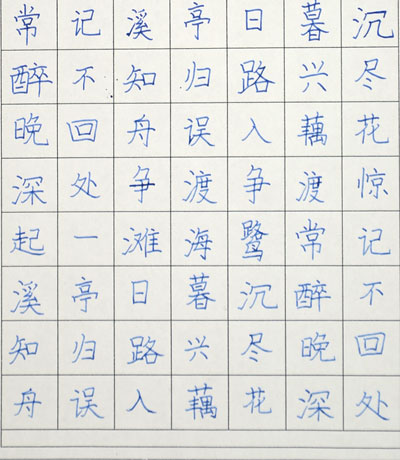 常记溪亭日暮沉
醉不知归路兴尽
晚回舟误入藕花
深处争渡争渡惊
起一滩海鹭常记
溪亭日暮沉醉不
知归路兴尽晚回
舟误入藕花深处